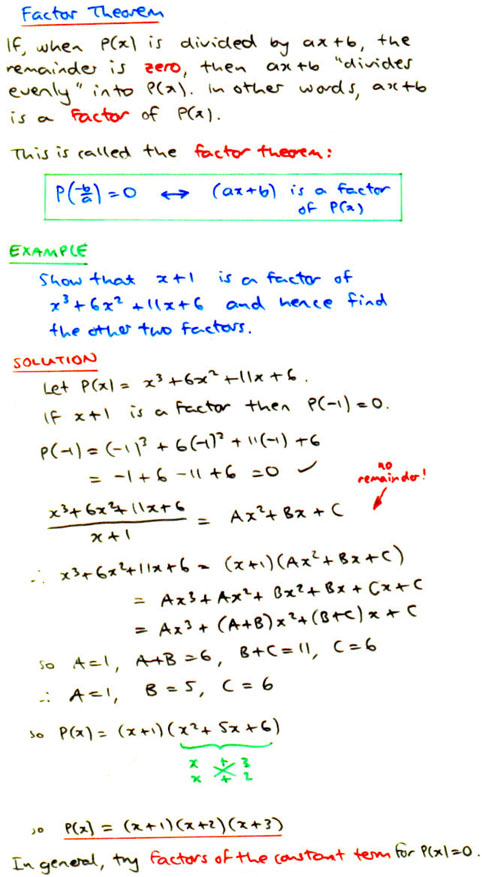 Factor Theorem
If, when P(x) is divided by ax+b, the
remainder is zero, then ax+b "divides
evenly" into P(x). In other words, ax+b
is a factor of P(x).
This is called the factor theorem:
P(-b/a)=0 ↔ (ax+b) is a factor
of P(x)
EXAMPLE
Show that x+1 is a factor of
x³+6x²+11x+6 and hence find
the other two factors.
SOLUTION
Let P(x) = x³+6x²+11x+6.
If x+1 is a factor then P(-1)=0.
P(-1) = (-1)³ + 6(-1)² + 11(-1) + 6
= -1+6-11+6 = 0 ✓
no
remainder!
(x³+6x²+11x+6)/(x+1) = Ax²+Bx+C
∴ x³+6x²+11x+6 = (x+1)(Ax²+Bx+C)
= Ax³+Ax²+Bx²+Bx+Cx+C
= Ax³+(A+B)x²+(B+C)x+C
so A=1, A+B=6, B+C=11, C=6
∴ A=1, B=5, C=6
so P(x) = (x+1)(x²+5x+6)
x + 3
x + 2
so P(x) = (x+1)(x+2)(x+3)
In general, try factors of the constant term for P(x)=0.